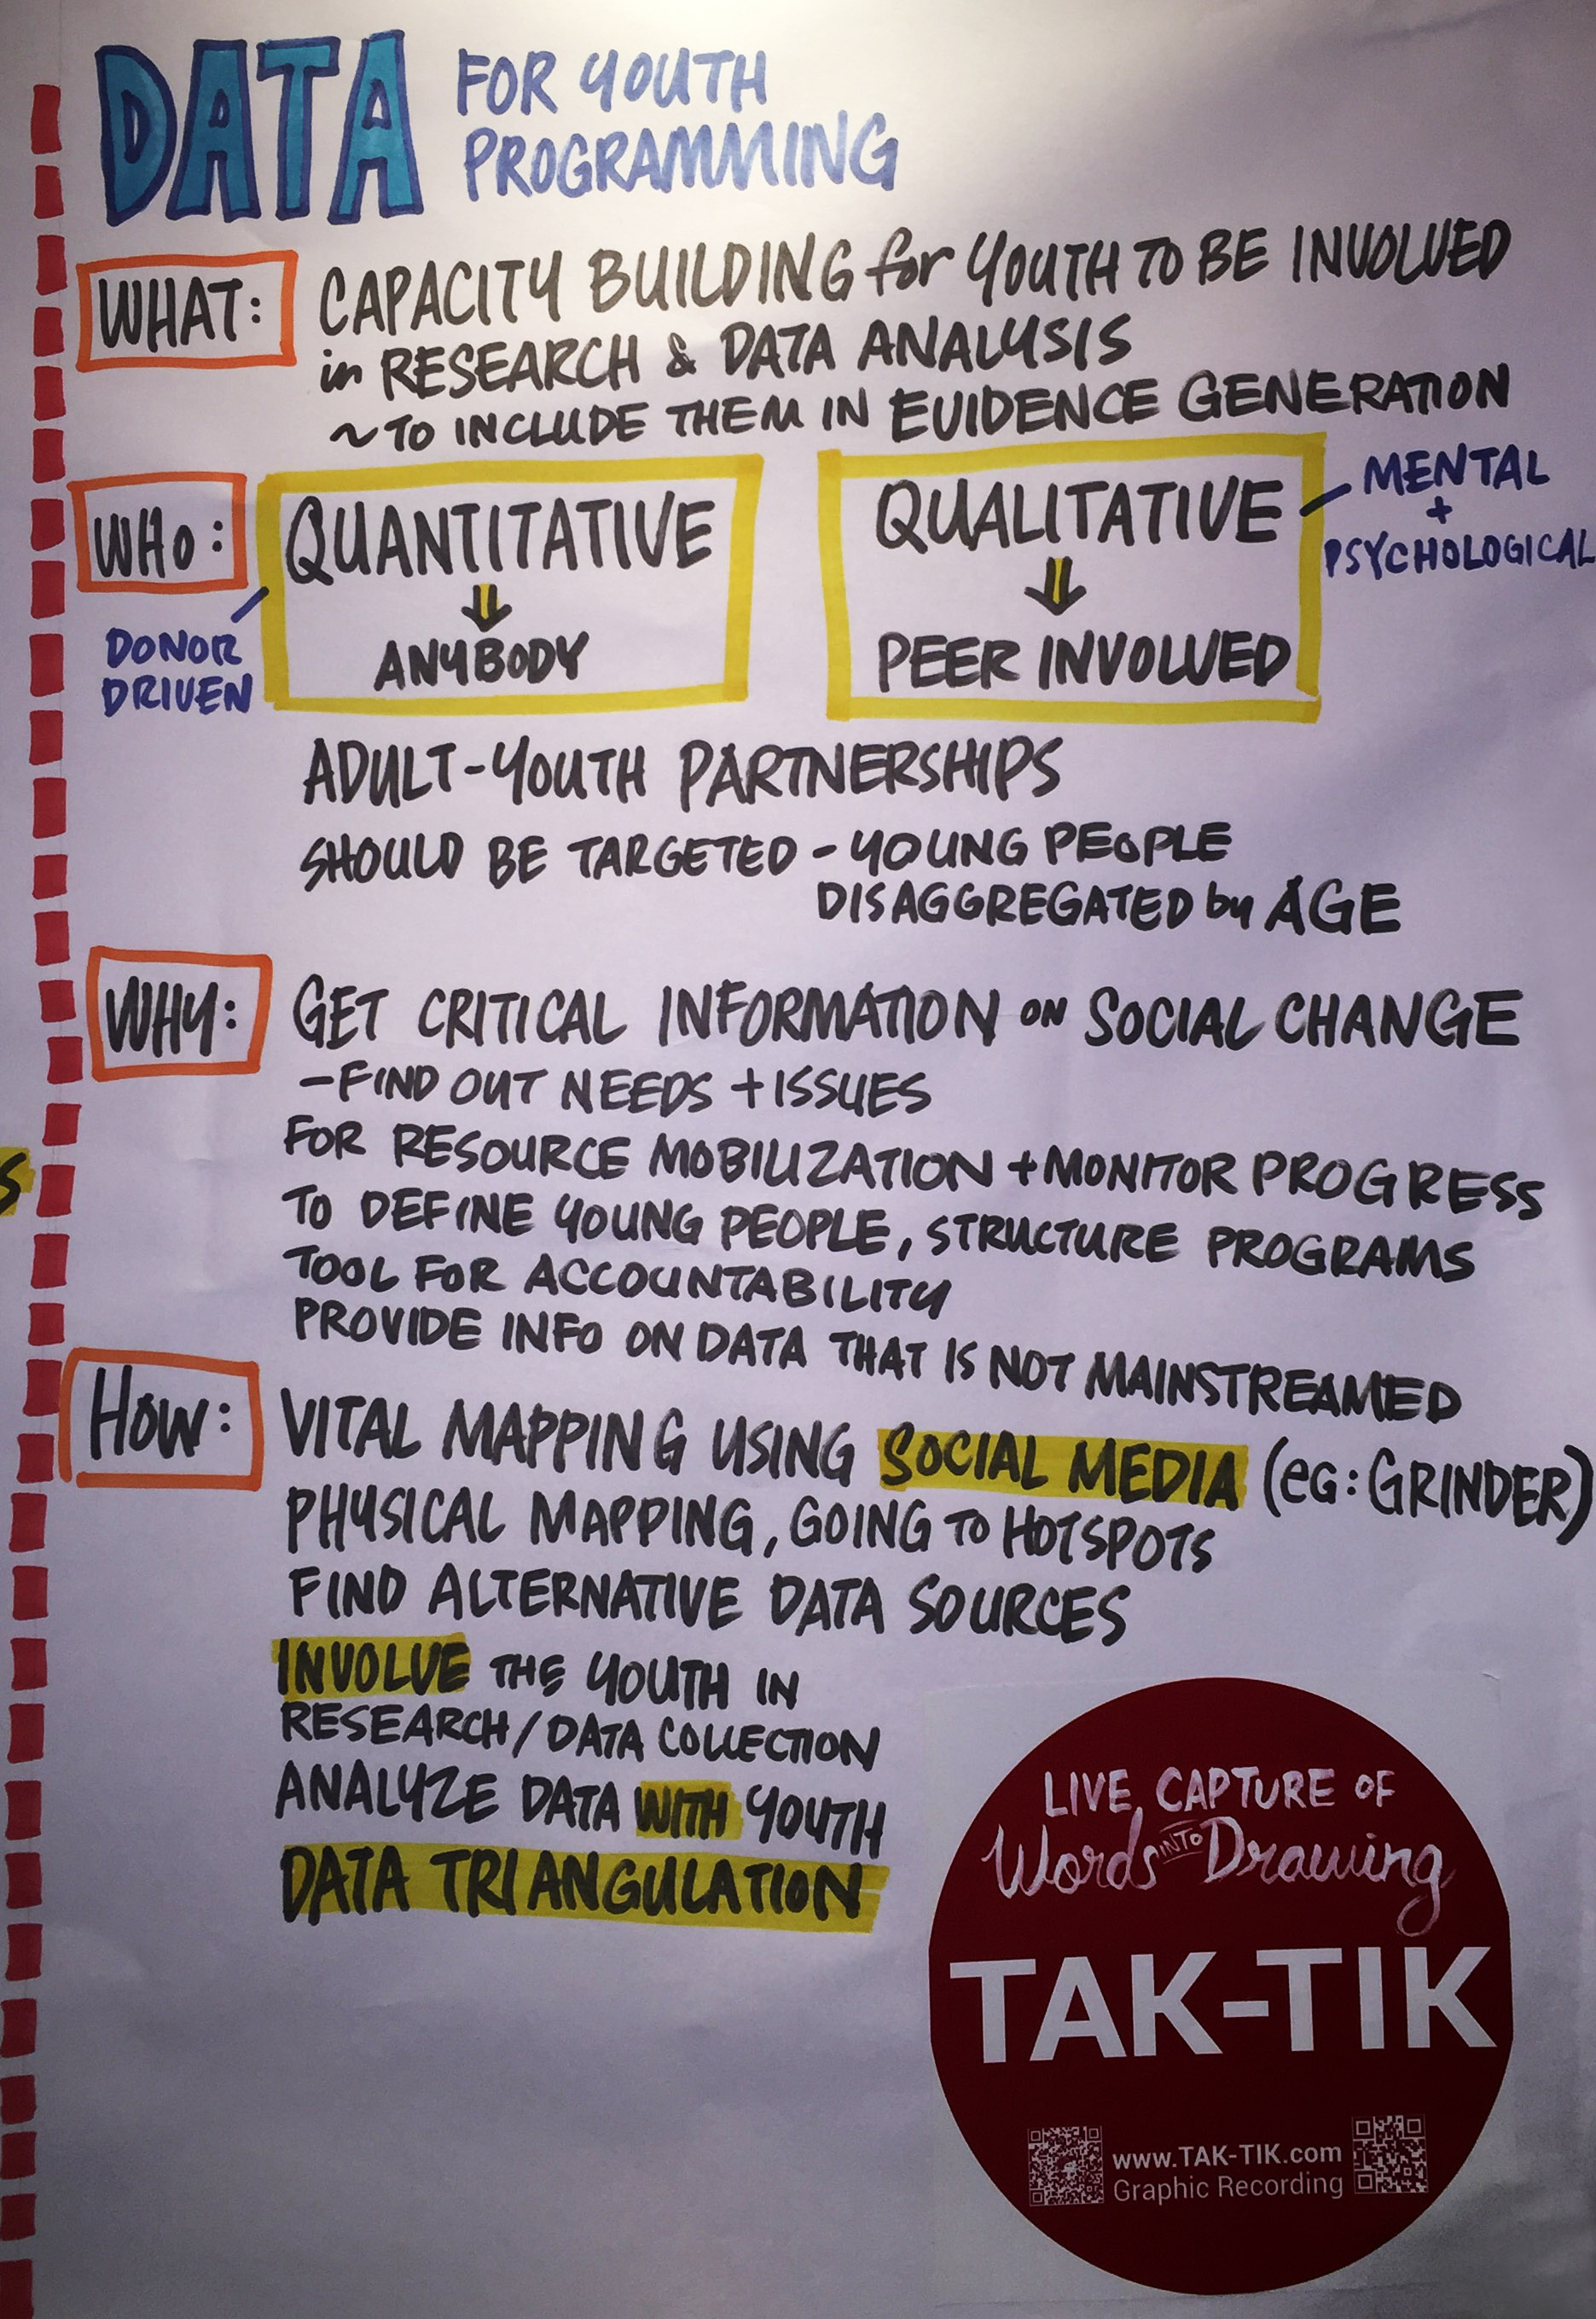 DATA FOR YOUTH
PROGRAMMING
WHAT: CAPACITY BUILDING for YOUTH TO BE INVOLVED
in RESEARCH & DATA ANALYSIS
~TO INCLUDE THEM IN EVIDENCE GENERATION
WHO: QUANTITATIVE
ANYBODY
DONOR
DRIVEN
QUALITATIVE
PEER INVOLVED
MENTAL
+
PSYCHOLOGICAL
ADULT-YOUTH PARTNERSHIPS
SHOULD BE TARGETED - YOUNG PEOPLE
DISAGGREGATED by AGE
WHY: GET CRITICAL INFORMATION ON SOCIAL CHANGE
-FIND OUT NEEDS + ISSUES
FOR RESOURCE MOBILIZATION + MONITOR PROGRESS
TO DEFINE YOUNG PEOPLE, STRUCTURE PROGRAMS
TOOL FOR ACCOUNTABILITY
PROVIDE INFO ON DATA THAT IS NOT MAINSTREAMED
HOW: VITAL MAPPING USING SOCIAL MEDIA (eG: GRINDER)
PHYSICAL MAPPING, GOING TO HOTSPOTS
FIND ALTERNATIVE DATA SOURCES
INVOLVE THE YOUTH IN
RESEARCH/DATA COLLECTION
ANALYZE DATA WITH YOUTH
DATA TRIANGULATION
LIVE CAPTURE OF
Words INTO Drawing
TAK-TIK
www.TAK-TIK.com
Graphic Recording